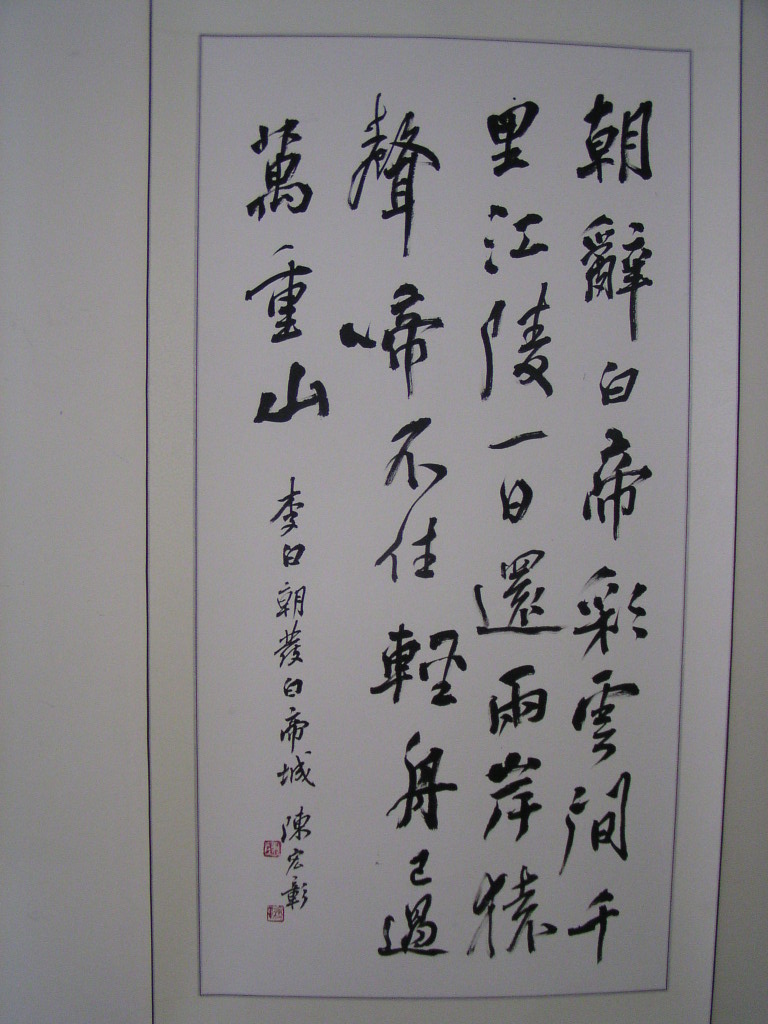 朝辭白帝彩雲間千
里江陵一日還兩岸猿
聲啼不住輕舟已過
萬重山
李白朝發白帝城 陳宏彰